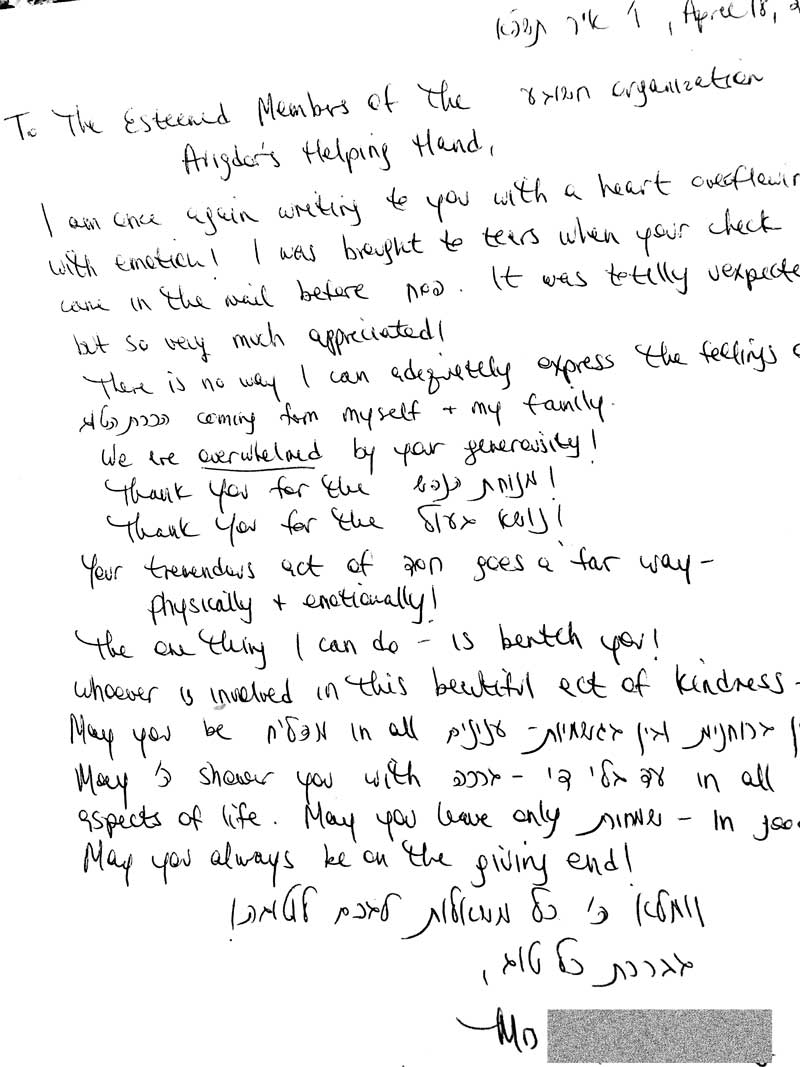 ו' אייר תשפ"א, April 18,
To The Esteemed Members of the חשובע organization
Avigdor's Helping Hand,
I am once again writing to you with a heart overflowin
with emotion! I was brought to tears when your check
came in the mail before פסח. It was totally unexpecte
but so very much appreciated!
There is no way I can adequately express the feelings o
הכרת הטוב coming from myself + my family.
We are overwhelmed by your generousity!
Thank you for the מנוחת הנפש!
Thank you for the נושא בעול!
Your tremendous act of חסד goes a far way -
physically + emotionally!
The one thing I can do - is bentch you!
whoever is involved in this beautiful act of kindness -
May you be מצליח in all ענינים - בין ברוחניות ובין בגשמיות
May ה' shower you with ברכה - עד בלי די in all
aspects of life. May you have only שמחות - in
May you always be on the giving end!
וימלא ה' כל משאלות לבכם לטובה!
בברכת כל טוב,